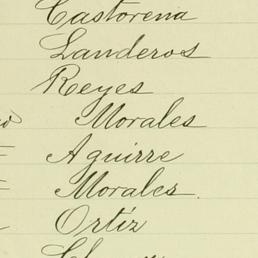 Castorena
Landeros
Reyes
Morales
Aguirre
Morales.
Ortíz